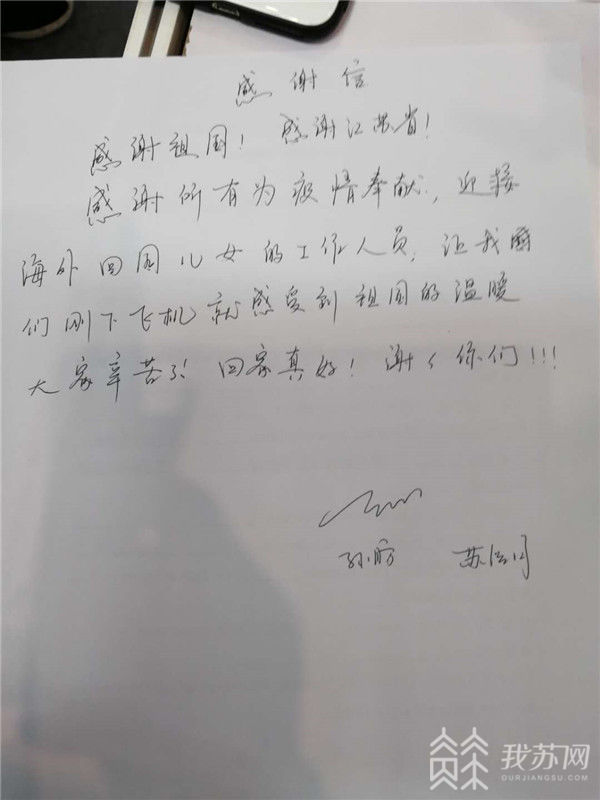 感谢信
感谢祖国！ 感谢江苏省！
感谢所有为疫情奉献，迎接
海外回国儿女的工作人员，让我
们刚下飞机就感受到祖国的温暖
大家辛苦了！回家真好！谢々你们!!!
孙 苏
我苏网
OURJIANGSU.COM